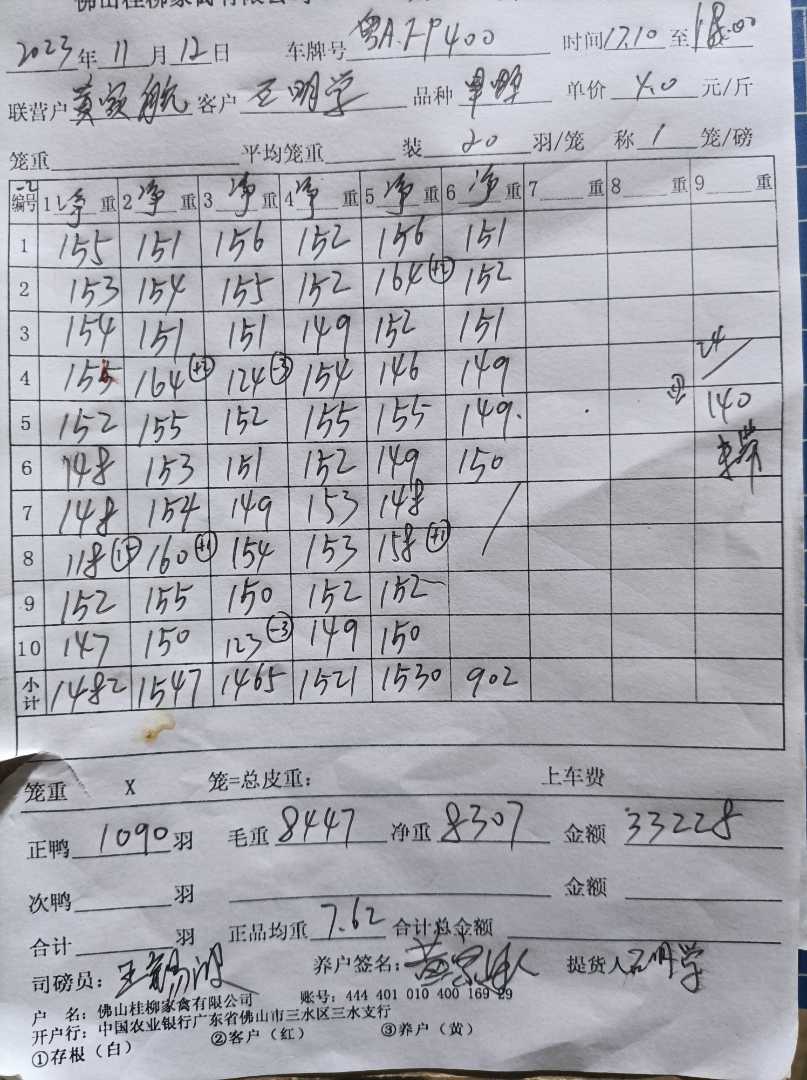 2023年11月12日 车牌号 粤A.FP400 时间17.10至18.00
联营户 黄家航 客户 王明学 品种 单价 4.0 元/斤
笼重 平均笼重 装 20 羽/笼 称 1 笼/磅
编号 1 净 重 2 净 重 3 净 重 4 净 重 5 净 重 6 净 重 7 重 8 重 9 重
1 155 151 156 152 156 151
2 153 154 155 152 164 (+2) 152
3 154 151 151 149 152 151
4 155 164 (+2) 124 (-3) 154 146 149 24
5 152 155 152 155 155 149. 140
6 148 153 151 152 149 150
7 148 154 149 153 148 /
8 118 160 (+1) 154 153 158 (+1)
9 152 155 150 152 152
10 147 150 123 (-3) 149 150
小计 1482 1547 1465 1521 1530 902
笼重 X 笼=总皮重: 上车费
正鸭 1090 羽 毛重 8447 净重 8307 金额 33228
次鸭 羽 金额
合计 羽 正品均重 7.62 合计总金额
司磅员: 养户签名: 提货人 王明学
户 名: 佛山桂柳家禽有限公司 账号: 444 401 010 400 169 29
开户行: 中国农业银行广东省佛山市三水区三水支行
①存根（白） ②客户（红） ③养户（黄）